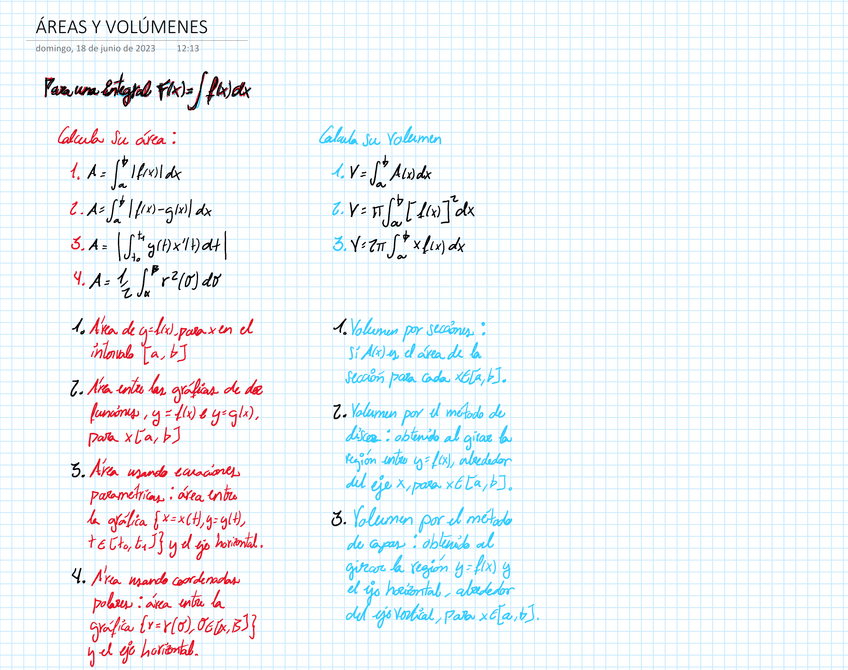 ÁREAS Y VOLÚMENES
domingo, 18 de junio de 2023 12:13
Para una integral F(x)=∫f(x)dx
Calcula su área:
1. A = ∫_a^b |f(x)| dx
2. A = ∫_a^b |f(x)-g(x)| dx
3. A = |∫_{t₀}^{t₁} y(t) x'(t) dt|
4. A = 1/2 ∫_α^β r²(σ) dσ
1. Área de y=f(x), para x en el
intervalo [a, b]
2. Área entre las gráficas de dos
funciones, y = f(x) e y=g(x),
para x[a, b]
3. Área usando ecuaciones
paramétricas: área entre
la gráfica {x=x(t), y=y(t),
t∈[t₀, t₁]} y el eje horizontal.
4. Área usando coordenadas
polares: área entre la
gráfica {r=r(σ), σ∈[α, β]}
y el eje horizontal.
Calcula su Volumen
1. V = ∫_a^b A(x) dx
2. V = π∫_a^b [f(x)]² dx
3. V = 2π ∫_a^b x f(x) dx
1. Volumen por secciones:
Si A(x) es el área de la
sección para cada x∈[a, b].
2. Volumen por el método de
discos: obtenido al girar la
región entre y=f(x), alrededor
del eje x, para x∈[a, b].
3. Volumen por el método
de capas: obtenido al
girar la región y=f(x) y
el eje horizontal, alrededor
del eje vertical, para x∈[a, b].